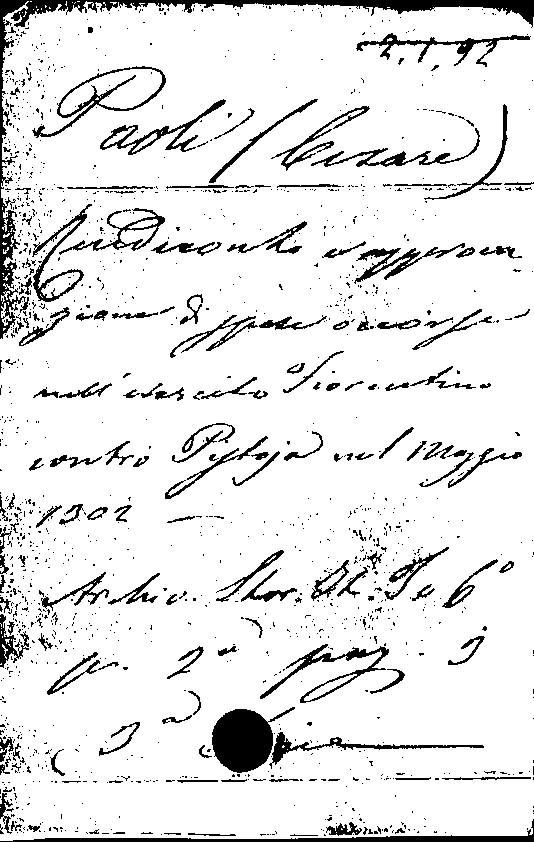 2.1.92
Paoli (Cesare)
Rendiconto e approva
zione di spese occorse
nell'esercito Fiorentino
contro Pistoja nel Maggio
1302 —
Archiv. Stor. It. To 6º
p. 2ª pag. 3
(3ª